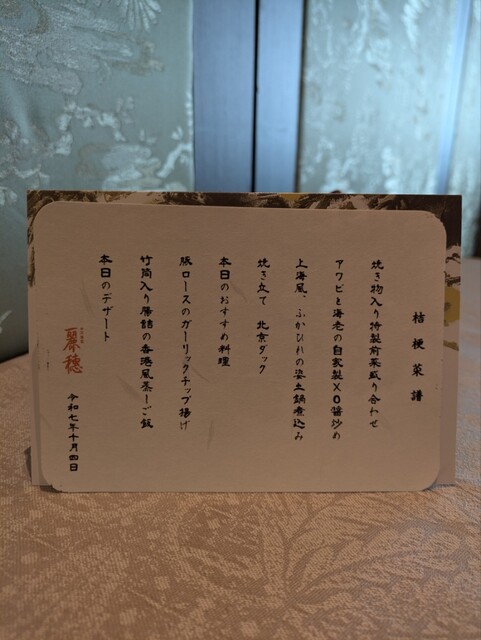 桔梗菜譜
焼き物入り特製前菜盛り合わせ
アワビと海老の自家製XO醬炒め
上海風、ふかひれの姿土鍋煮込み
焼き立て 北京ダック
本日のおすすめ料理
豚ロースのガーリックチップ揚げ
竹筒入り腸詰の香港風蒸しご飯
本日のデザート
令和七年十月四日